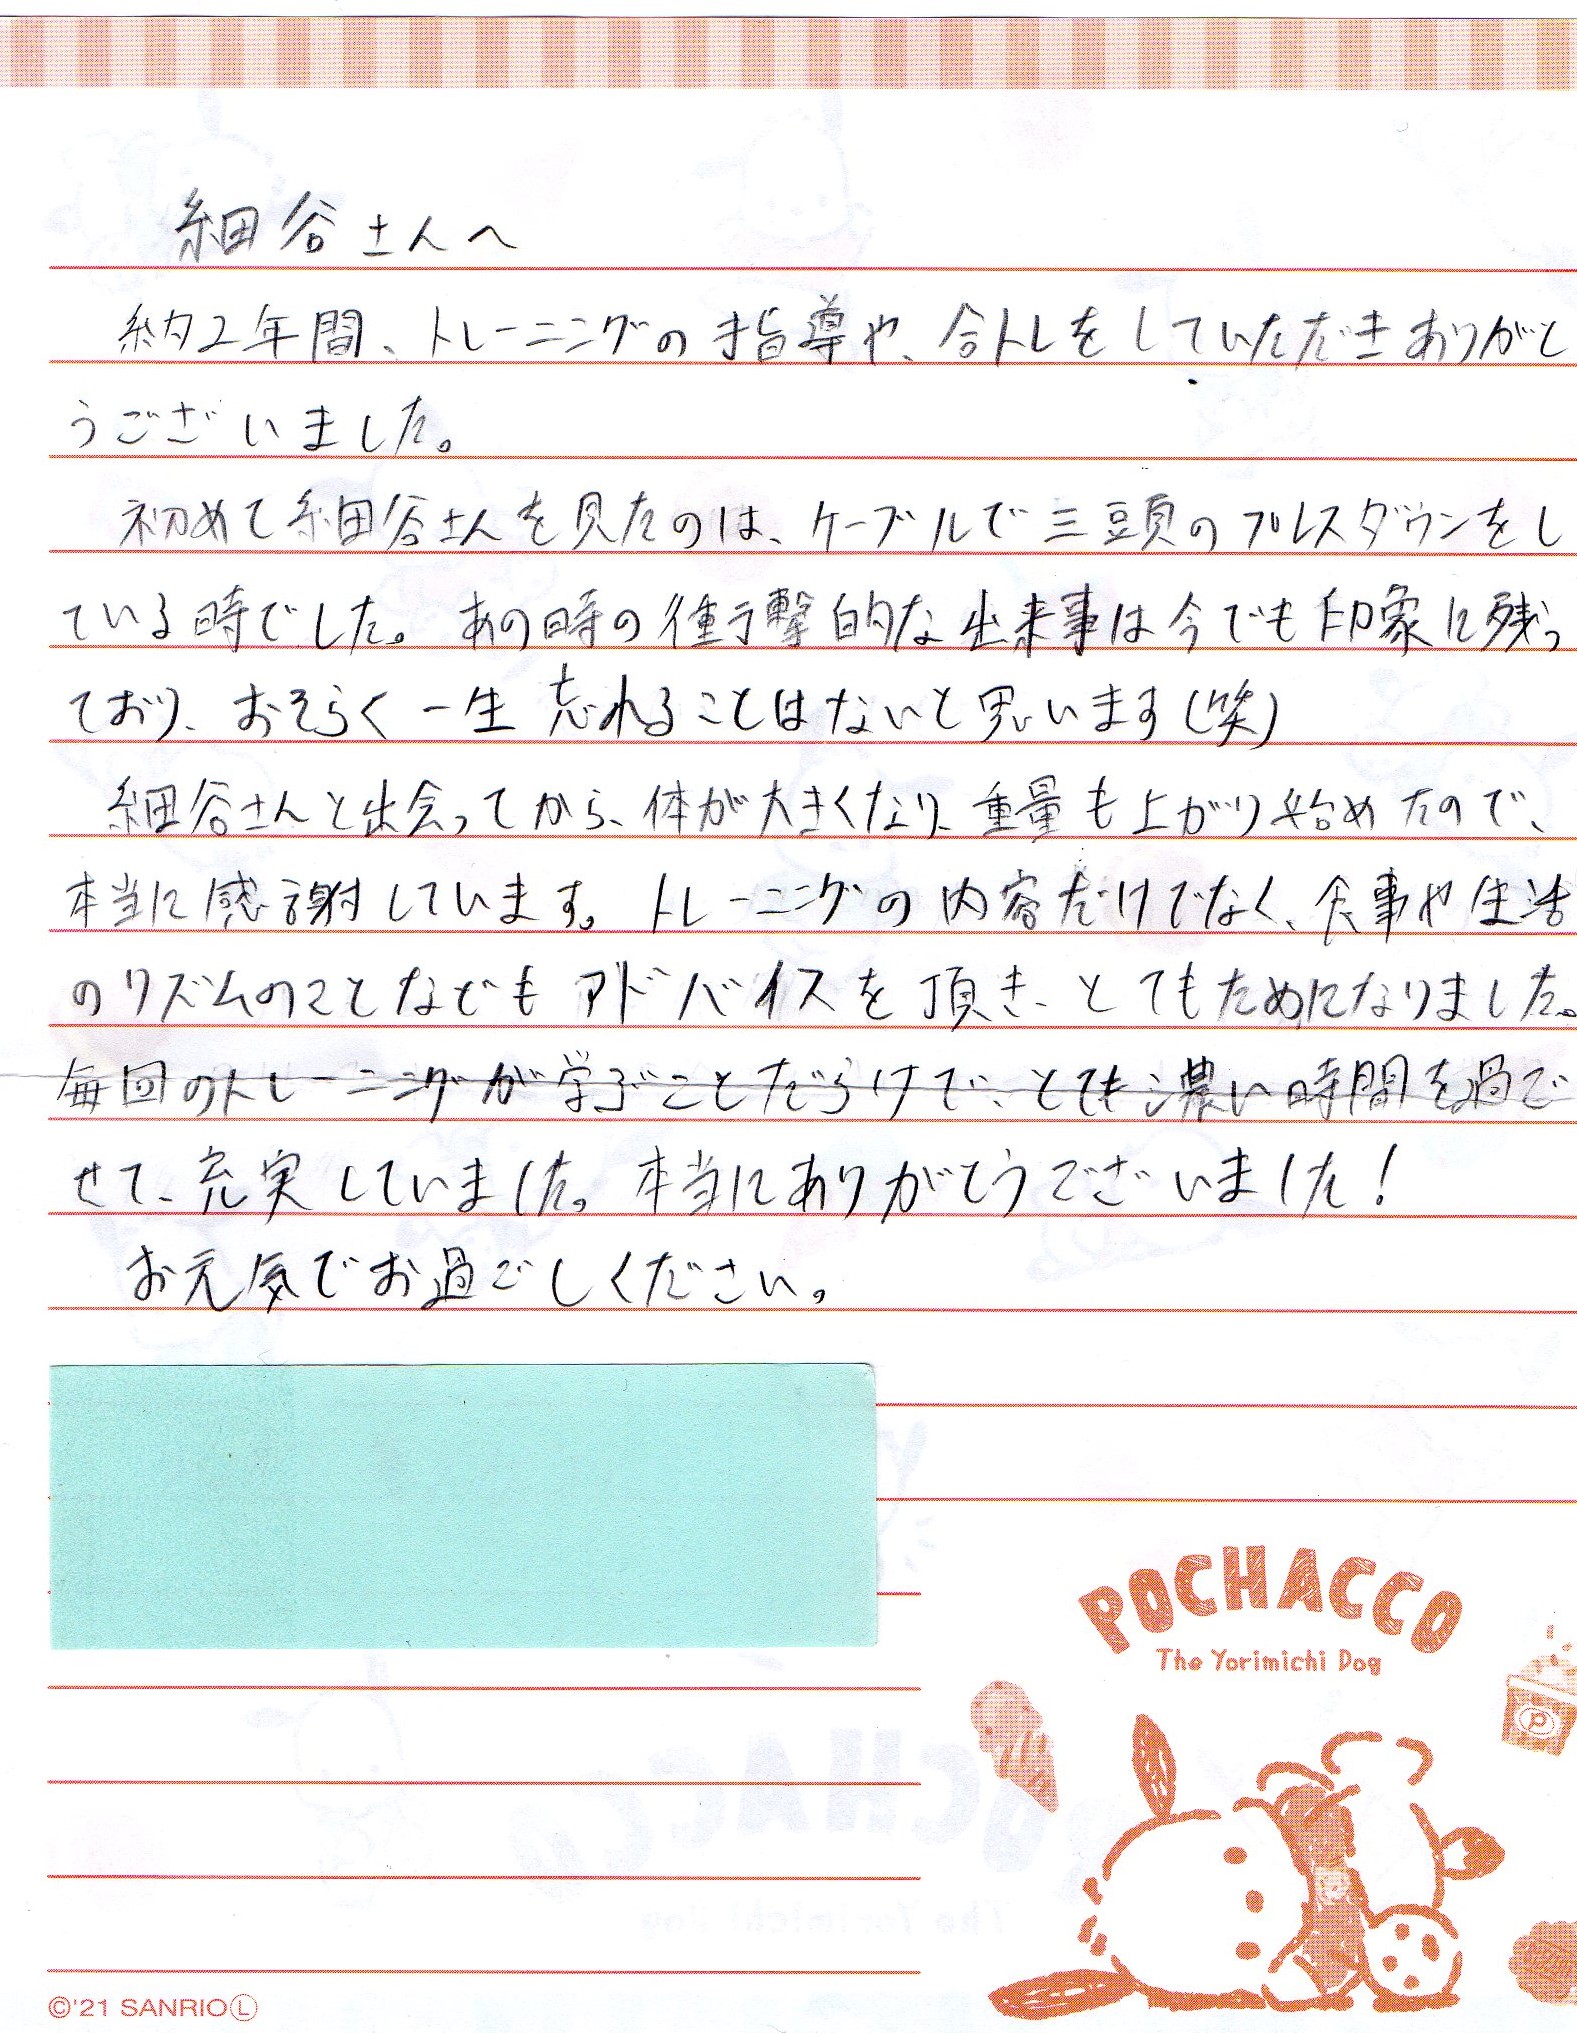 細谷さんへ
約2年間、トレーニングの指導や、合トレをしていただきありがと
うございました。
初めて細谷さんを見たのは、ケーブルで三頭のプレスダウンをし
ている時でした。あの時の衝撃的な出来事は今でも印象に残っ
ており、おそらく一生忘れることはないと思います(笑)
細谷さんと出会ってから、体が大きくなり、重量も上がり始めたので、
本当に感謝しています。トレーニングの内容だけでなく、食事や生活
のリズムのことなどもアドバイスを頂き、とてもためになりました。
毎回のトレーニングが学ぶことだらけで、とても濃い時間を過ご
せて、充実していました。本当にありがとうございました!
お元気でお過ごしください。
POCHACCO
The Yorimichi Dog
P
©'21 SANRIO Ⓛ